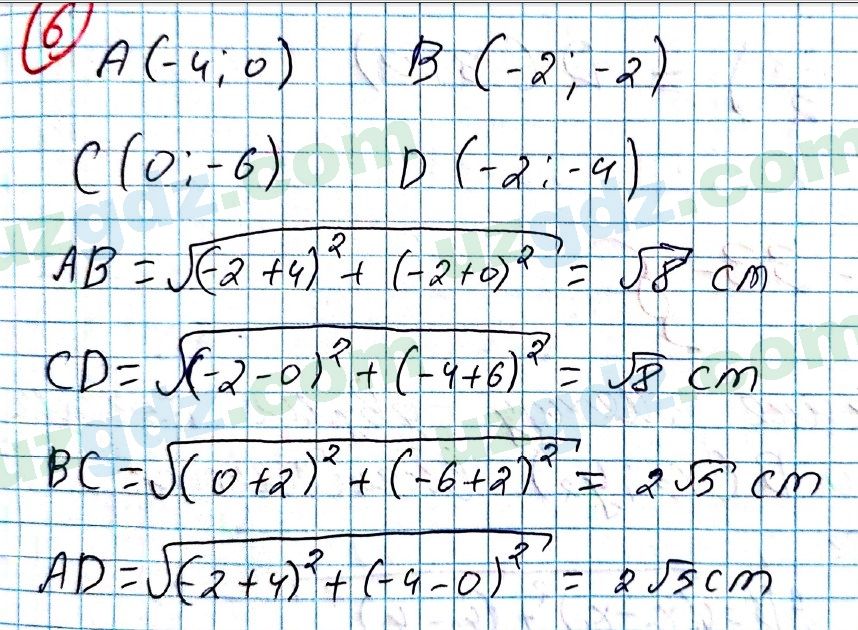 6
A (-4; 0) B (-2; -2)
C (0; -6) D (-2; -4)
AB = √(-2+4)² + (-2+0)² = √8 cm
CD = √(-2-0)² + (-4+6)² = √8 cm
BC = √(0+2)² + (-6+2)² = 2√5 cm
AD = √(-2+4)² + (-4-0)² = 2√5 cm
uzgdz.com
uzgdz.com
uzgdz.com
uzgdz.com